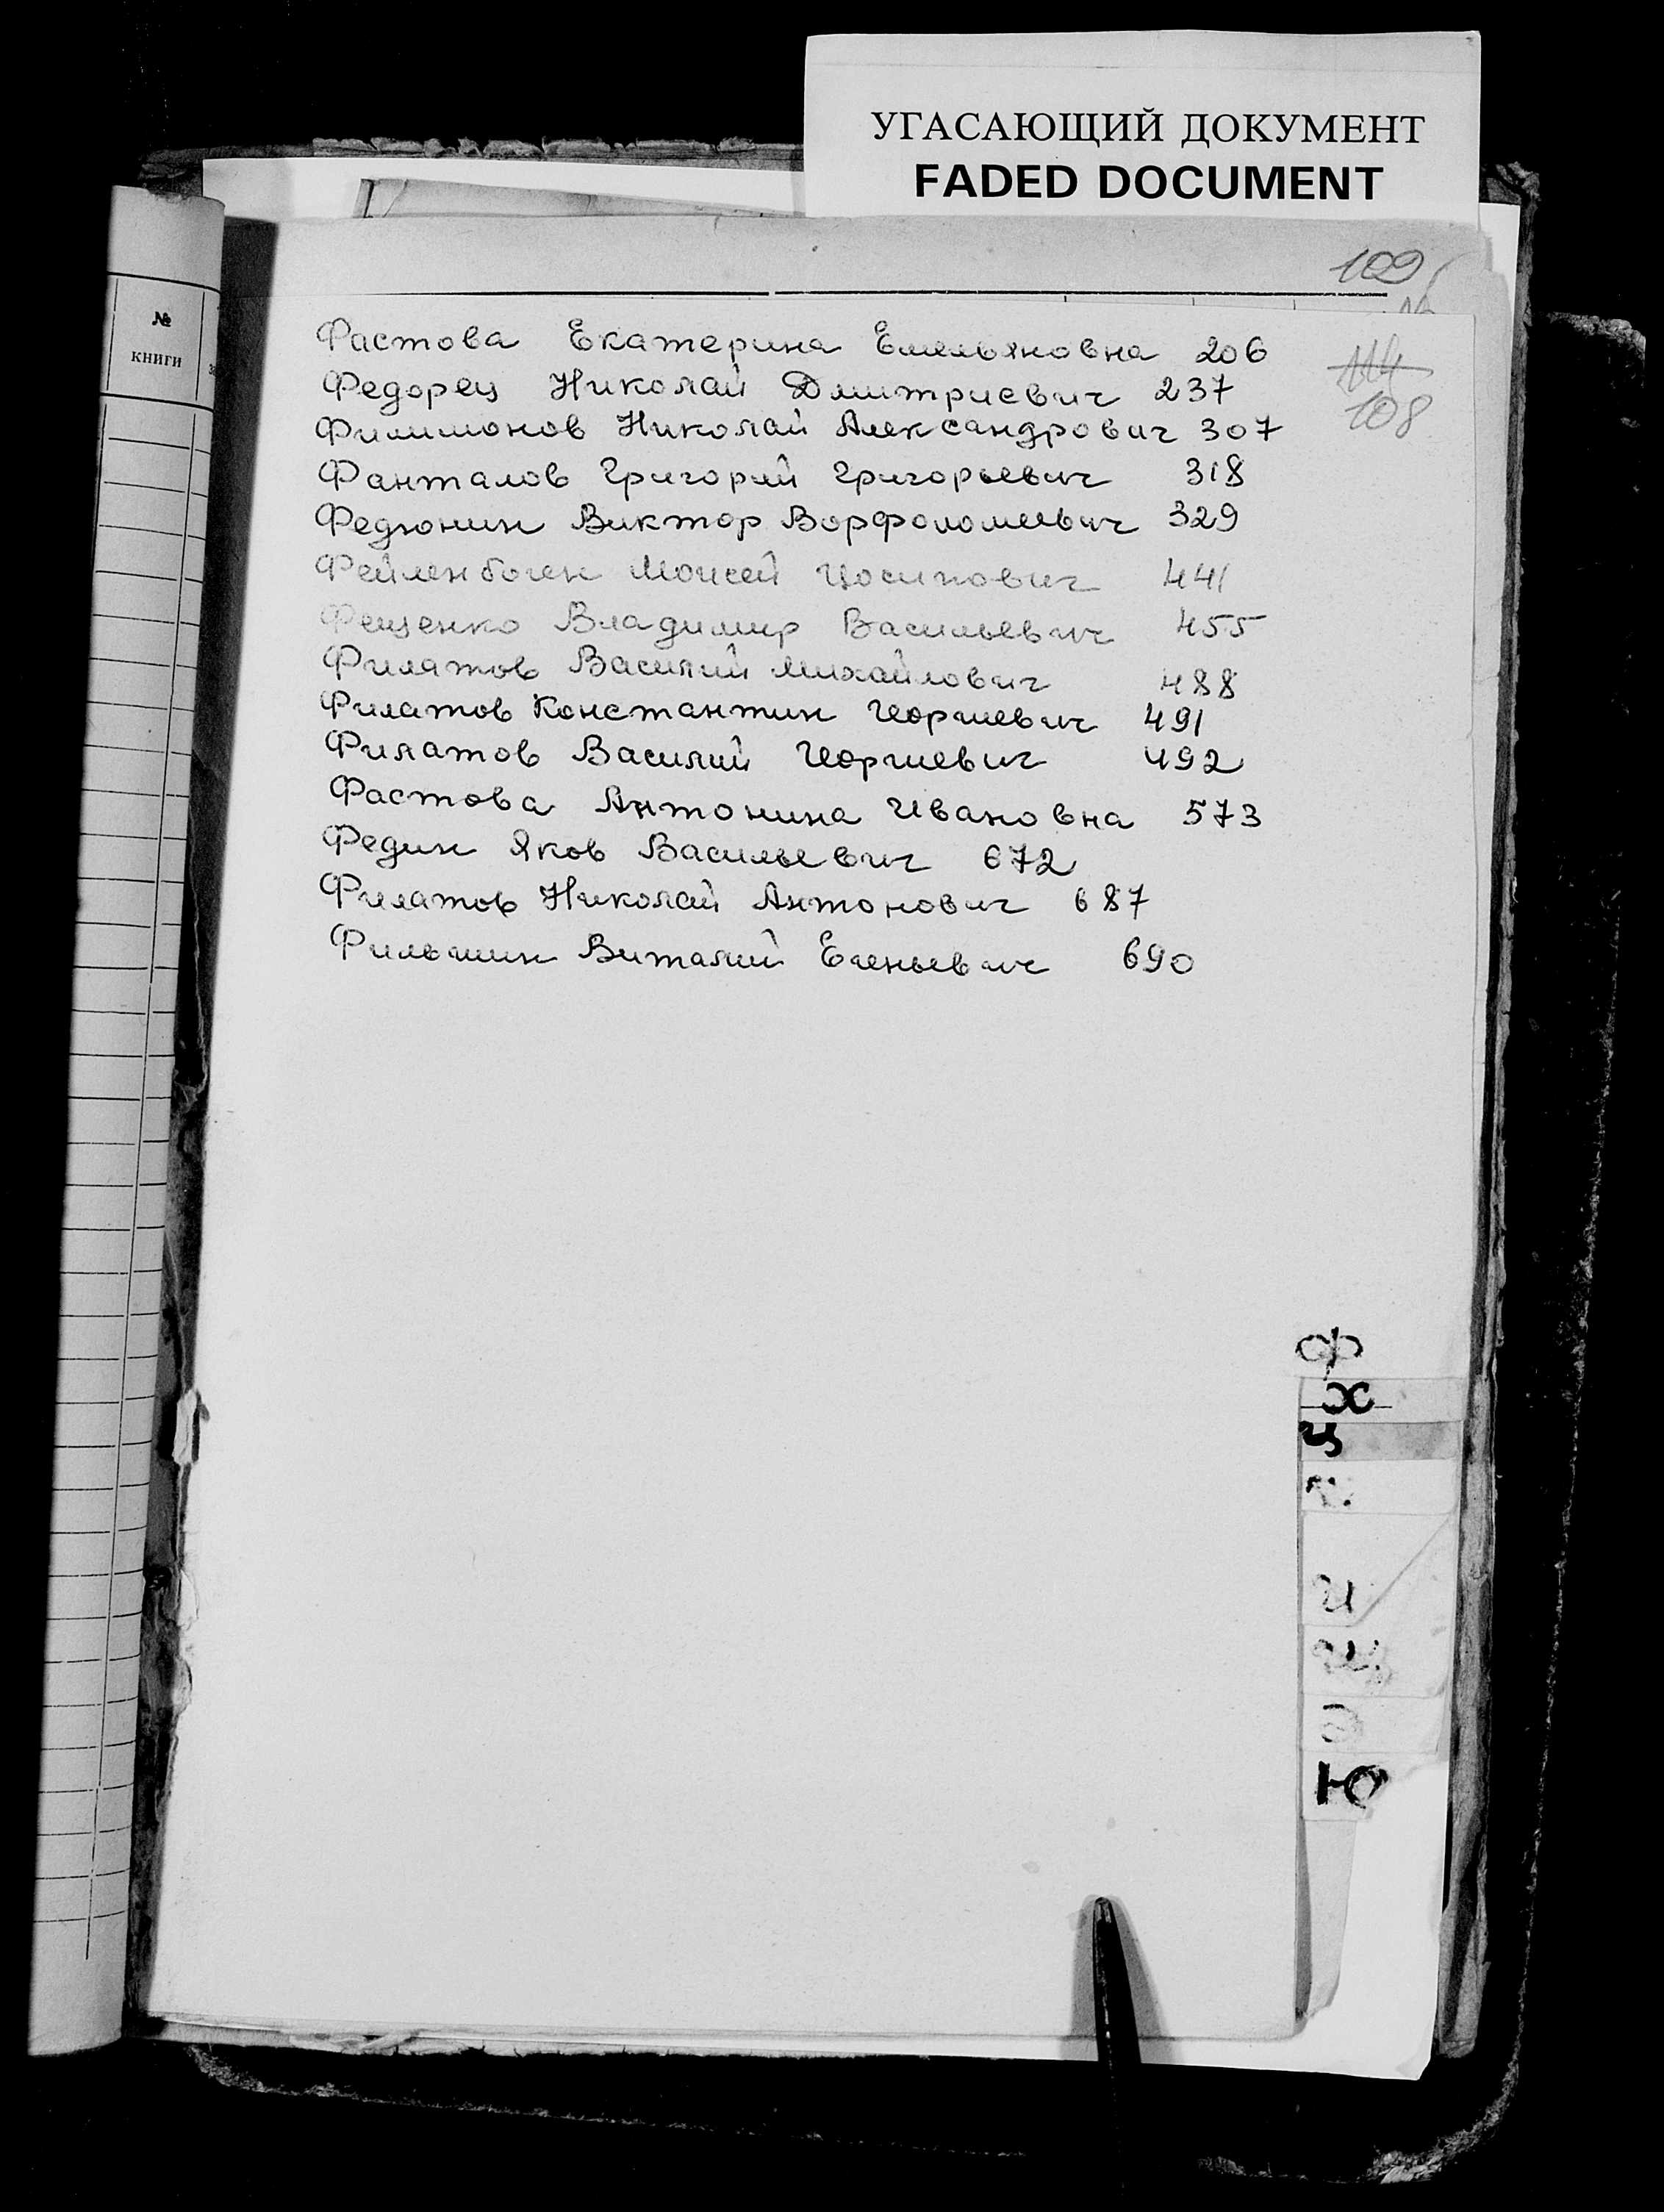 УГАСАЮЩИЙ ДОКУМЕНТ
FADED DOCUMENT
109
№
КНИГИ
Фастова Екатерина Емельяновна 206
114
Федорец Николай Дмитриевич 237
108
Филимонов Николай Александрович 307
Фанталов Григорий Григорьевич 318
Федюнин Виктор Ворфоломеевич 329
Фейленбоген Моисей Иосипович 441
Фещенко Владимир Васильевич 455
Филатов Василий Михайлович 488
Филатов Константин Георгиевич 491
Филатов Василий Георгиевич 492
Фастова Антонина Ивановна 573
Федин Яков Васильевич 672
Филатов Николай Антонович 687
Фильшин Виталий Евгеньевич 690
Ф
Х
Ц
Ч
Ю